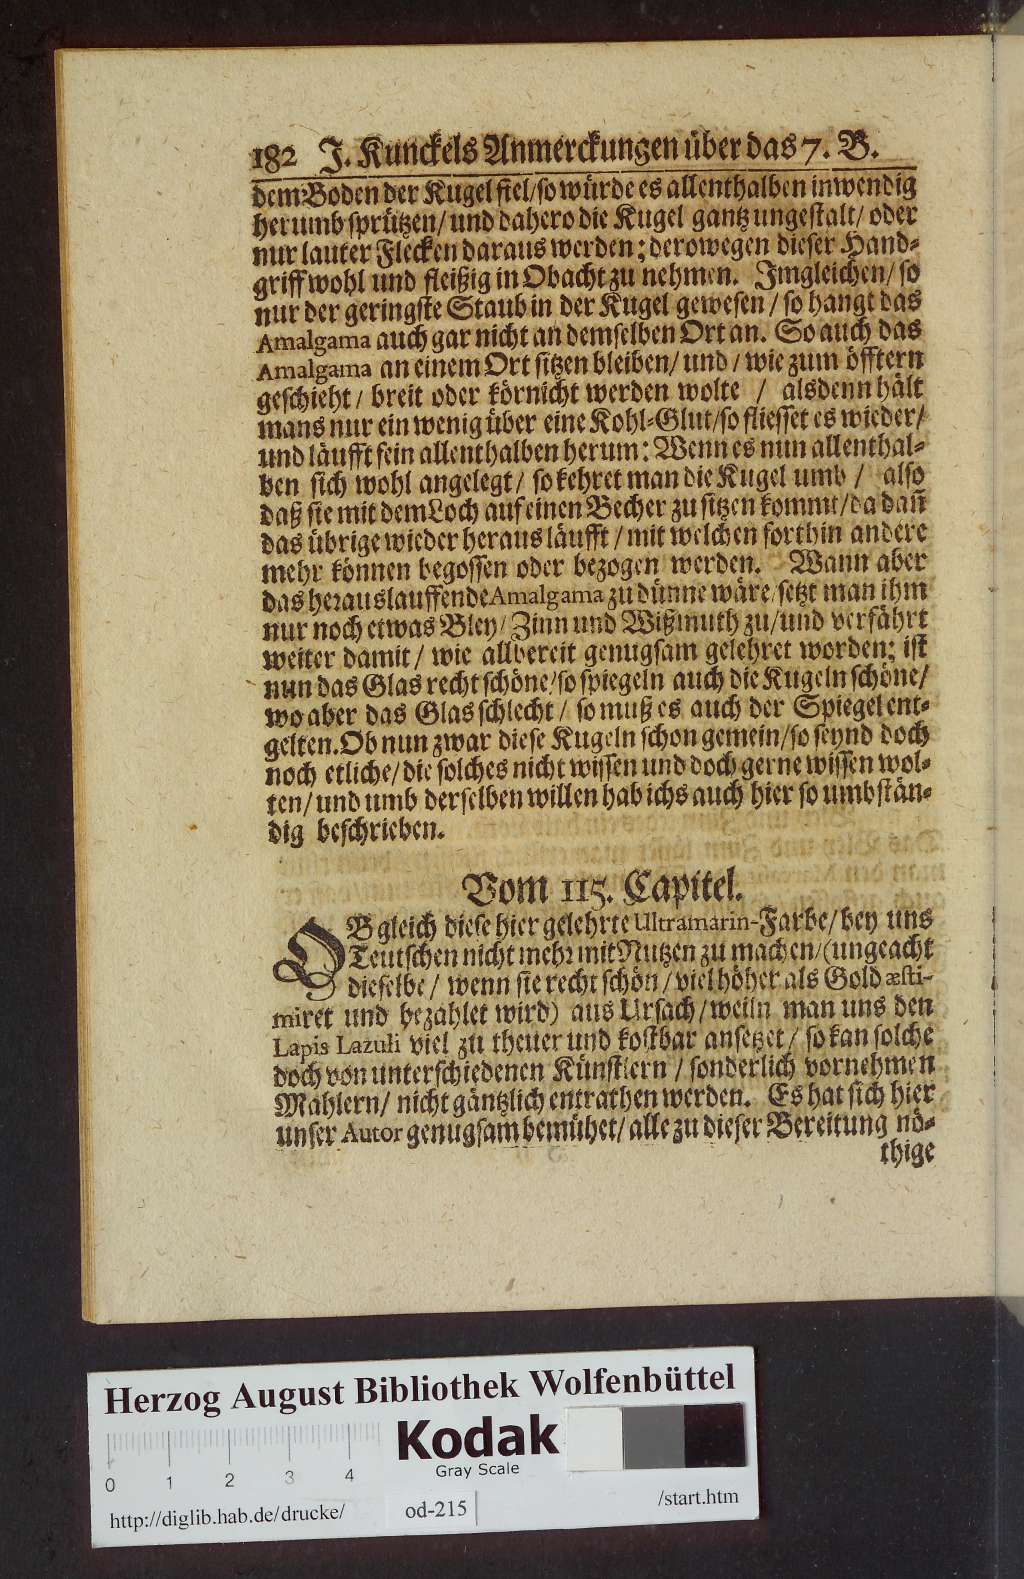 182 J. Kunckels Anmerckungen über das 7. B.
dem Boden der Kugel fiel/ so würde es allenthalben inwendig
herumb sprützen/ und dahero die Kugel gantz ungestalt/ oder
nur lauter Flecken daraus werden; derowegen dieser Hand-
griff wohl und fleißig in Obacht zu nehmen. Imgleichen/ so
nur der geringste Staub in der Kugel gewesen/ so hangt das
Amalgama auch gar nicht an demselben Ort an. So auch das
Amalgama an einem Ort sitzen bleiben/ und/ wie zum öfftern
geschieht/ breit oder körnicht werden wolte / alsdenn hält
mans nur ein wenig über eine Kohl-Glut/ so fliesset es wieder/
und läufft fein allenthalben herum: Wenn es nun allenthal-
ben sich wohl angelegt/ so kehret man die Kugel umb / also
daß sie mit dem Loch auf einen Becher zu sitzen kommt/ da dañ
das übrige wieder heraus läufft/ mit welchen forthin andere
mehr können begossen oder bezogen werden. Wann aber
das herauslauffende Amalgama zu dünne wäre/ setzt man ihm
nur noch etwas Bley/ Zinn und Wißmuth zu/ und verfährt
weiter damit/ wie allbereit genugsam gelehret worden; ist
nun das Glas recht schöne/ so spiegeln auch die Kugeln schöne/
wo aber das Glas schlecht/ so muß es auch der Spiegel ent-
gelten. Ob nun zwar diese Kugeln schon gemein/ so seynd doch
noch etliche/ die solches nicht wissen und doch gerne wissen wol-
ten/ und umb derselben willen hab ichs auch hier so umbstän-
dig beschrieben.
Vom 115. Capitel.
OBgleich diese hier gelehrte Ultramarin-Farbe/ bey uns
Teutschen nicht mehr mit Nutzen zu machen/ (ungeacht
dieselbe/ wenn sie recht schön/ viel höher als Gold æsti-
miret und bezahlet wird) aus Ursach/ weiln man uns den
Lapis Lazuli viel zu theuer und kostbar ansetzet/ so kan solche
doch von unterschiedenen Künstlern/ sonderlich vornehmen
Mahlern/ nicht gäntzlich entrathen werden. Es hat sich hier
unser Autor genugsam bemühet/ alle zu dieser Bereitung nö-
thige
Herzog August Bibliothek Wolfenbüttel
Kodak
Gray Scale
0 1 2 3 4
http://diglib.hab.de/drucke/ od-215 /start.htm